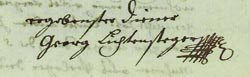 ergebenster Diener
Georg Lichtensteger